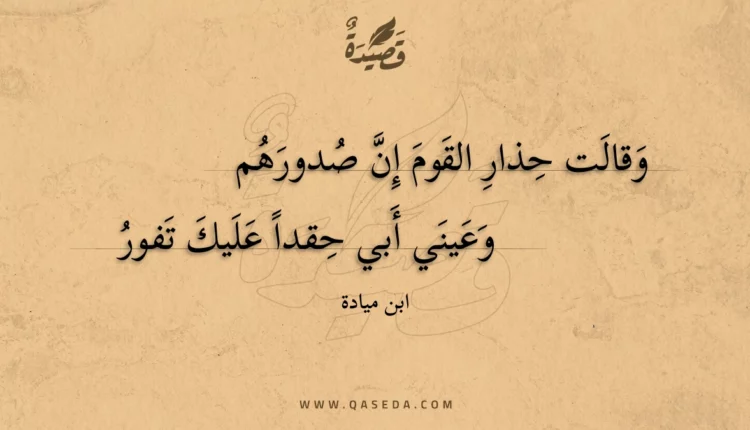 قَصِيْدَةٌ
وَقالَت حِذارِ القَومَ إِنَّ صُدورَهُم
وَعَينَي أَبي حِقداً عَلَيكَ تَفورُ
ابن ميادة
WWW.QASEDA.COM